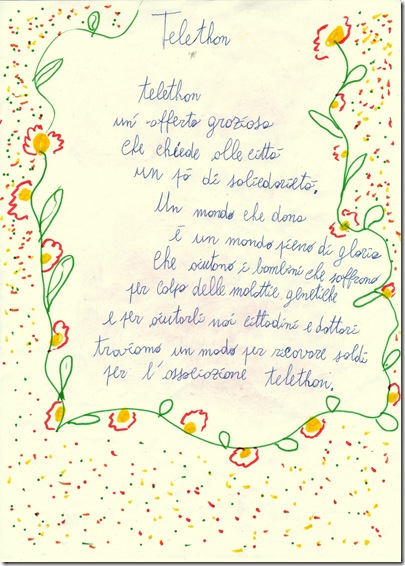 Telethon
telethon
un'offerta graziosa
che chiede alle città
un pò di soliedarietà.
Un mondo che dona
è un mondo pieno di gloria
che aiutano i bambini che soffrono
per colpa delle malattie genetiche
e per aiutarli noi cittadini e dottori
troviamo un modo per ricavare soldi
per l'associazione telethon.